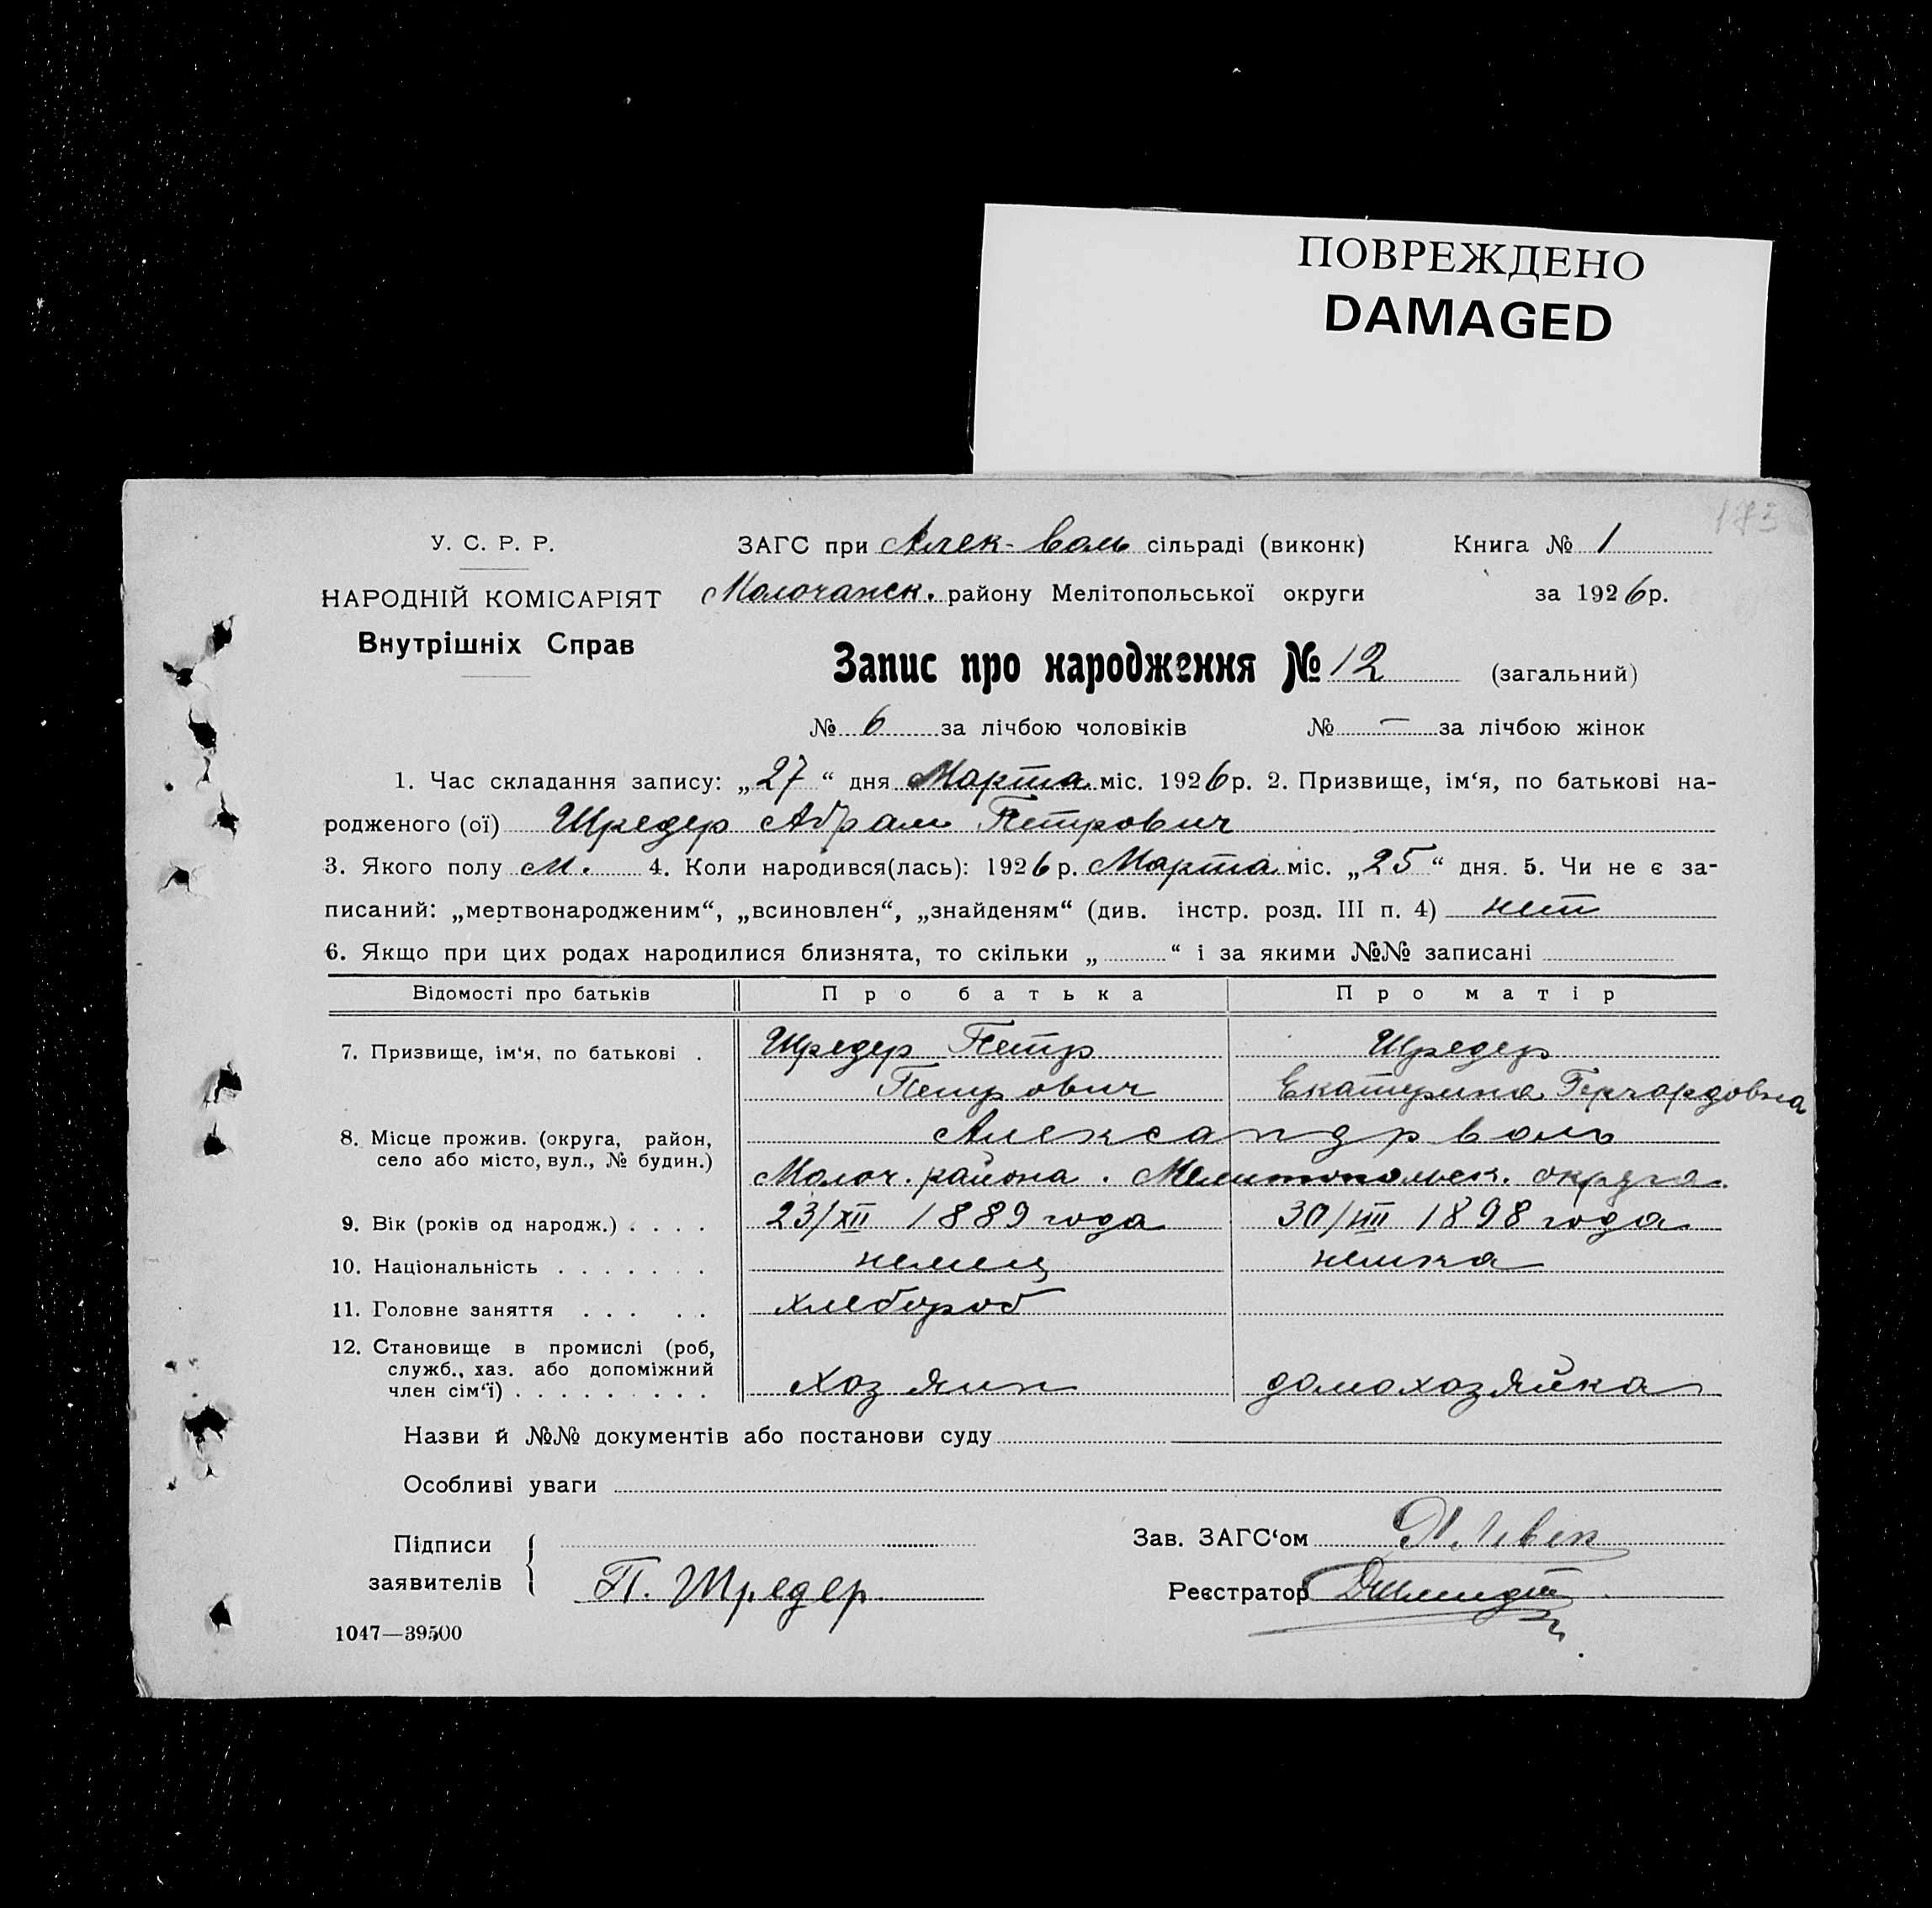 ПОВРЕЖДЕНО
DAMAGED
173
У. С. Р. Р. ЗАГС при Алек-воль сільраді (виконк) Книга № 1
НАРОДНІЙ КОМІСАРІЯТ Молочанск. району Мелітопольської округи за 1926р.
Внутрішніх Справ
Запис про народження № 12 (загальний)
№ 6 за лічбою чоловіків № — за лічбою жінок
1. Час складання запису: „27“ дня Марта міс. 1926р. 2. Призвище, ім‘я, по батькові на-
родженого (ої) Шредер Абрам Петрович
3. Якого полу м. 4. Коли народився(лась): 1926р. Марта міс. „25“ дня. 5. Чи не є за-
писаний: „мертвонародженим“, „всиновлен“, „знайденям“ (див. інстр. розд. III п. 4) нет
6. Якщо при цих родах народилися близнята, то скільки „ “ і за якими №№ записані
Відомості про батьків Про батька Про матір
7. Призвище, ім‘я, по батькові . Шредер Петр Шредер
Петрович Екатерина Герхардовна
8. Місце прожив. (округа, район, Александрволь
село або місто, вул., № будин.) Молоч. района. Мелитопольск. округа.
9. Вік (років од народж.) . . . . 23/XII 1889 года 30/VIII 1898 года
10. Національність . . . . . . . немец немка
11. Головне заняття . . . . . хлебороб
12. Становище в промислі (роб,
служб., хаз. або допоміжний
член сім‘ї) . . . . . . . . . хозяин домохозяйка
Назви й №№ документів або постанови суду
Особливі уваги
Підписи Зав. ЗАГС‘ом
заявителів П. Шредер. Реєстратор ДШмидт
1047—39500